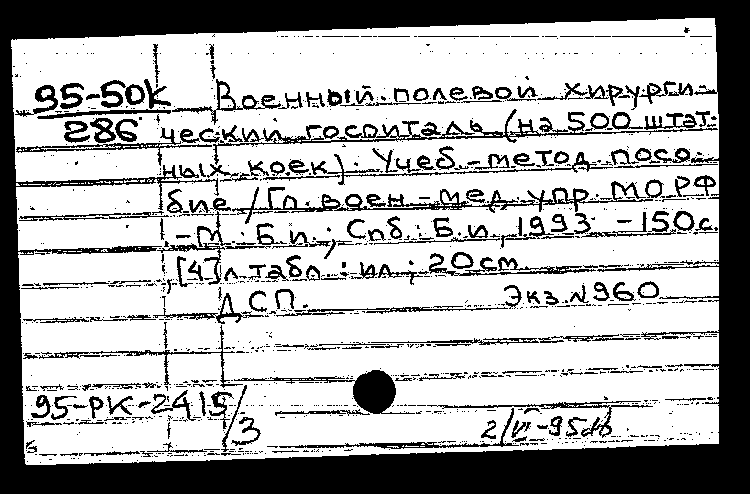 95-50К Военный полевой хирурги-
286 ческий госпиталь (на 500 штат-
ных коек). Учеб.-метод. посо-
бие / Гл. воен.-мед. упр. МО РФ
. - М. : Б. и. ; Спб. : Б. и., 1993. - 150 с.
, [4] л. табл. : ил ; 20 см.
ДСП. Экз. № 960
95-РК-2415/3
2/VI-95